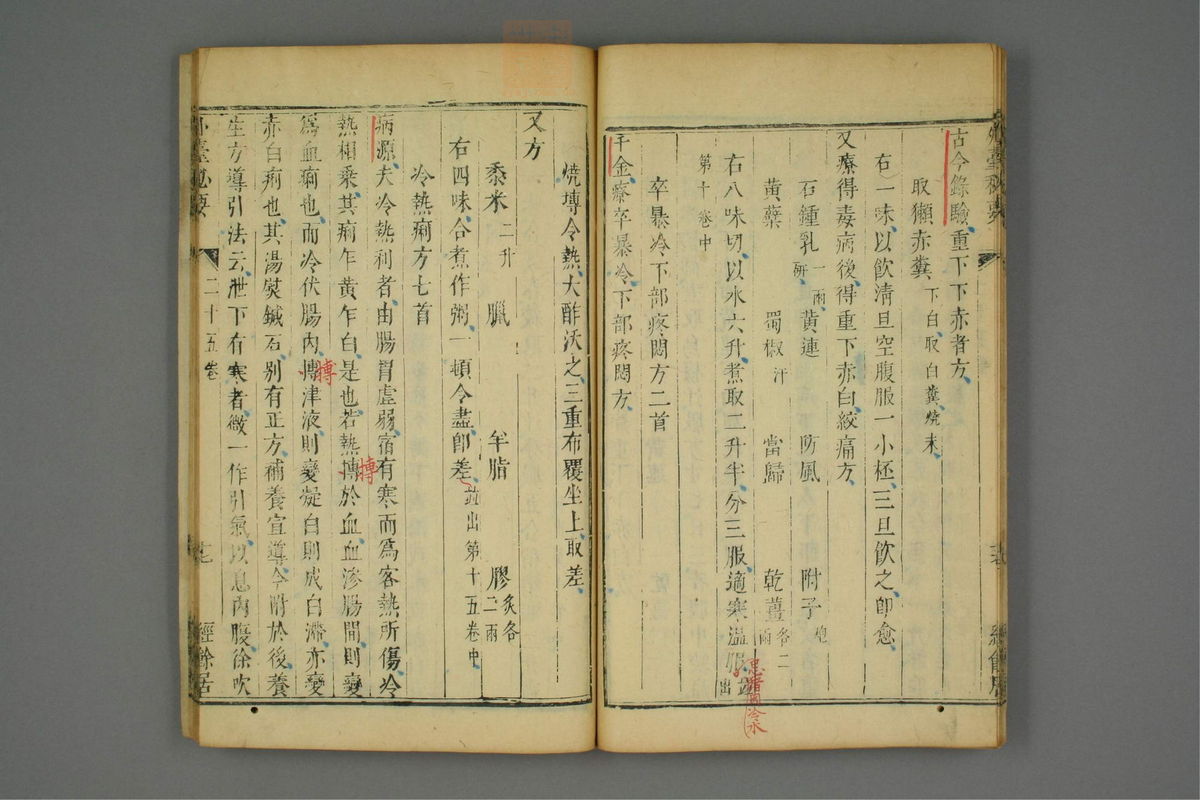 古今錄驗重下下赤者方
取獺赤糞下白取白糞燒末
右一味以飲清旦空腹服一小杯三旦飲之卽愈
又療得毒病後得重下赤白絞痛方
石鍾乳一兩研 黃連 防風 附子炮
黃蘗 蜀椒汗 當歸 乾薑各二兩
右八味切以水六升煮取二升半分三服適寒溫服並出
第十卷中
卒暴冷下部疼悶方二首
千金療卒暴冷下部疼悶方
燒塼令熱大酢沃之三重布覆坐上取差
又方
黍米二升 臘 羊脂 膠炙各二兩
右四味合煮作粥一頓令盡卽差並出第十五卷中
冷熱痢方七首
病源夫冷熱利者由腸胃虛弱宿有寒而爲客熱所傷冷
熱相乘其痢乍黃乍白是也若熱博於血血滲腸間則變
搏
爲血痢也而冷伏腸內博津液則變凝白則成白滯亦變
搏
赤白痢也其湯熨鍼石別有正方補養宣導今附於後養
生方導引法云泄下有寒者微一作引氣以息內腹徐吹
外臺秘要
二十五卷
經餘居